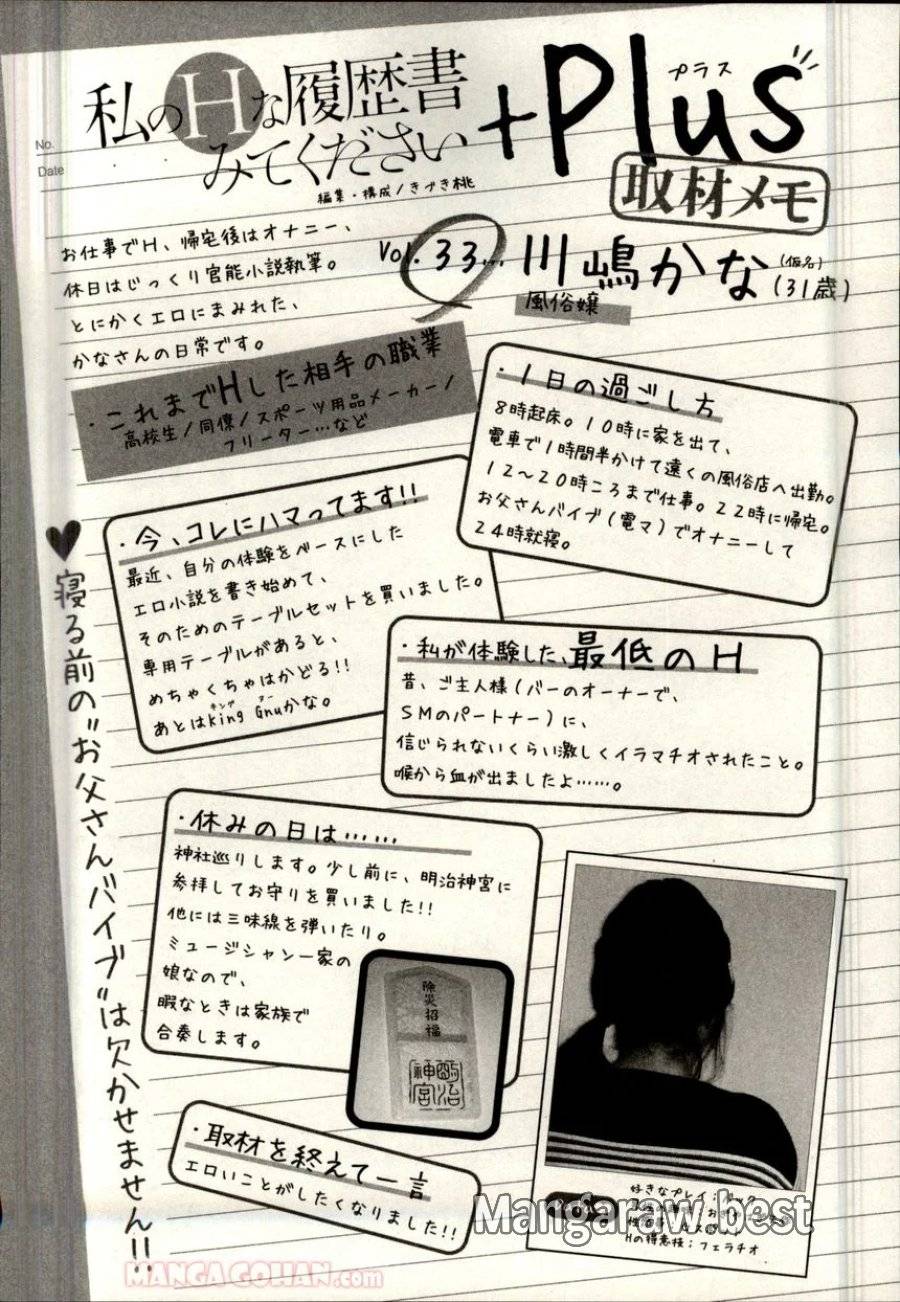 No.
Date
私のHな履歴書
みてください
+Plus
プラス
編集・構成/きづき桃
取材メモ
お仕事でH、帰宅後はオナニー、
休日はじっくり官能小説執筆。
とにかくエロにまみれた、
かなさんの日常です。
Vol.33…川嶋かな(仮名)(31歳)
風俗嬢
・これまでHした相手の職業
高校生/同僚/スポーツ用品メーカー/
フリーター…など
・1日の過ごし方
8時起床。10時に家を出て、
電車で1時間半かけて遠くの風俗店へ出勤。
12〜20時ころまで仕事。22時に帰宅。
お父さんバイブ(電マ)でオナニーして
24時就寝。
・今、コレにハマってます!!
最近、自分の体験をベースにした
エロ小説を書き始めて、
そのためのテーブルセットを買いました。
専用テーブルがあると、
めちゃくちゃはかどる!!
キング ヌー
あとはKing Gnuかな。
♥寝る前の"お父さんバイブ"は欠かせません!!
・私が体験した、最低のH
昔、ご主人様(バーのオーナーで、
SMのパートナー)に、
信じられないくらい激しくイラマチオされたこと。
喉から血が出ましたよ……。
・休みの日は……
神社巡りします。少し前に、明治神宮に
参拝してお守りを買いました!!
他には三味線を弾いたり。
ミュージシャン一家の
娘なので、
暇なときは家族で
合奏します。
除災招福
明治
神宮
・取材を終えて一言
エロいことがしたくなりました!!
好きなプレイ:
Hの得意技:フェラチオ
Mangaraw.best
MANGAGOHAN.com